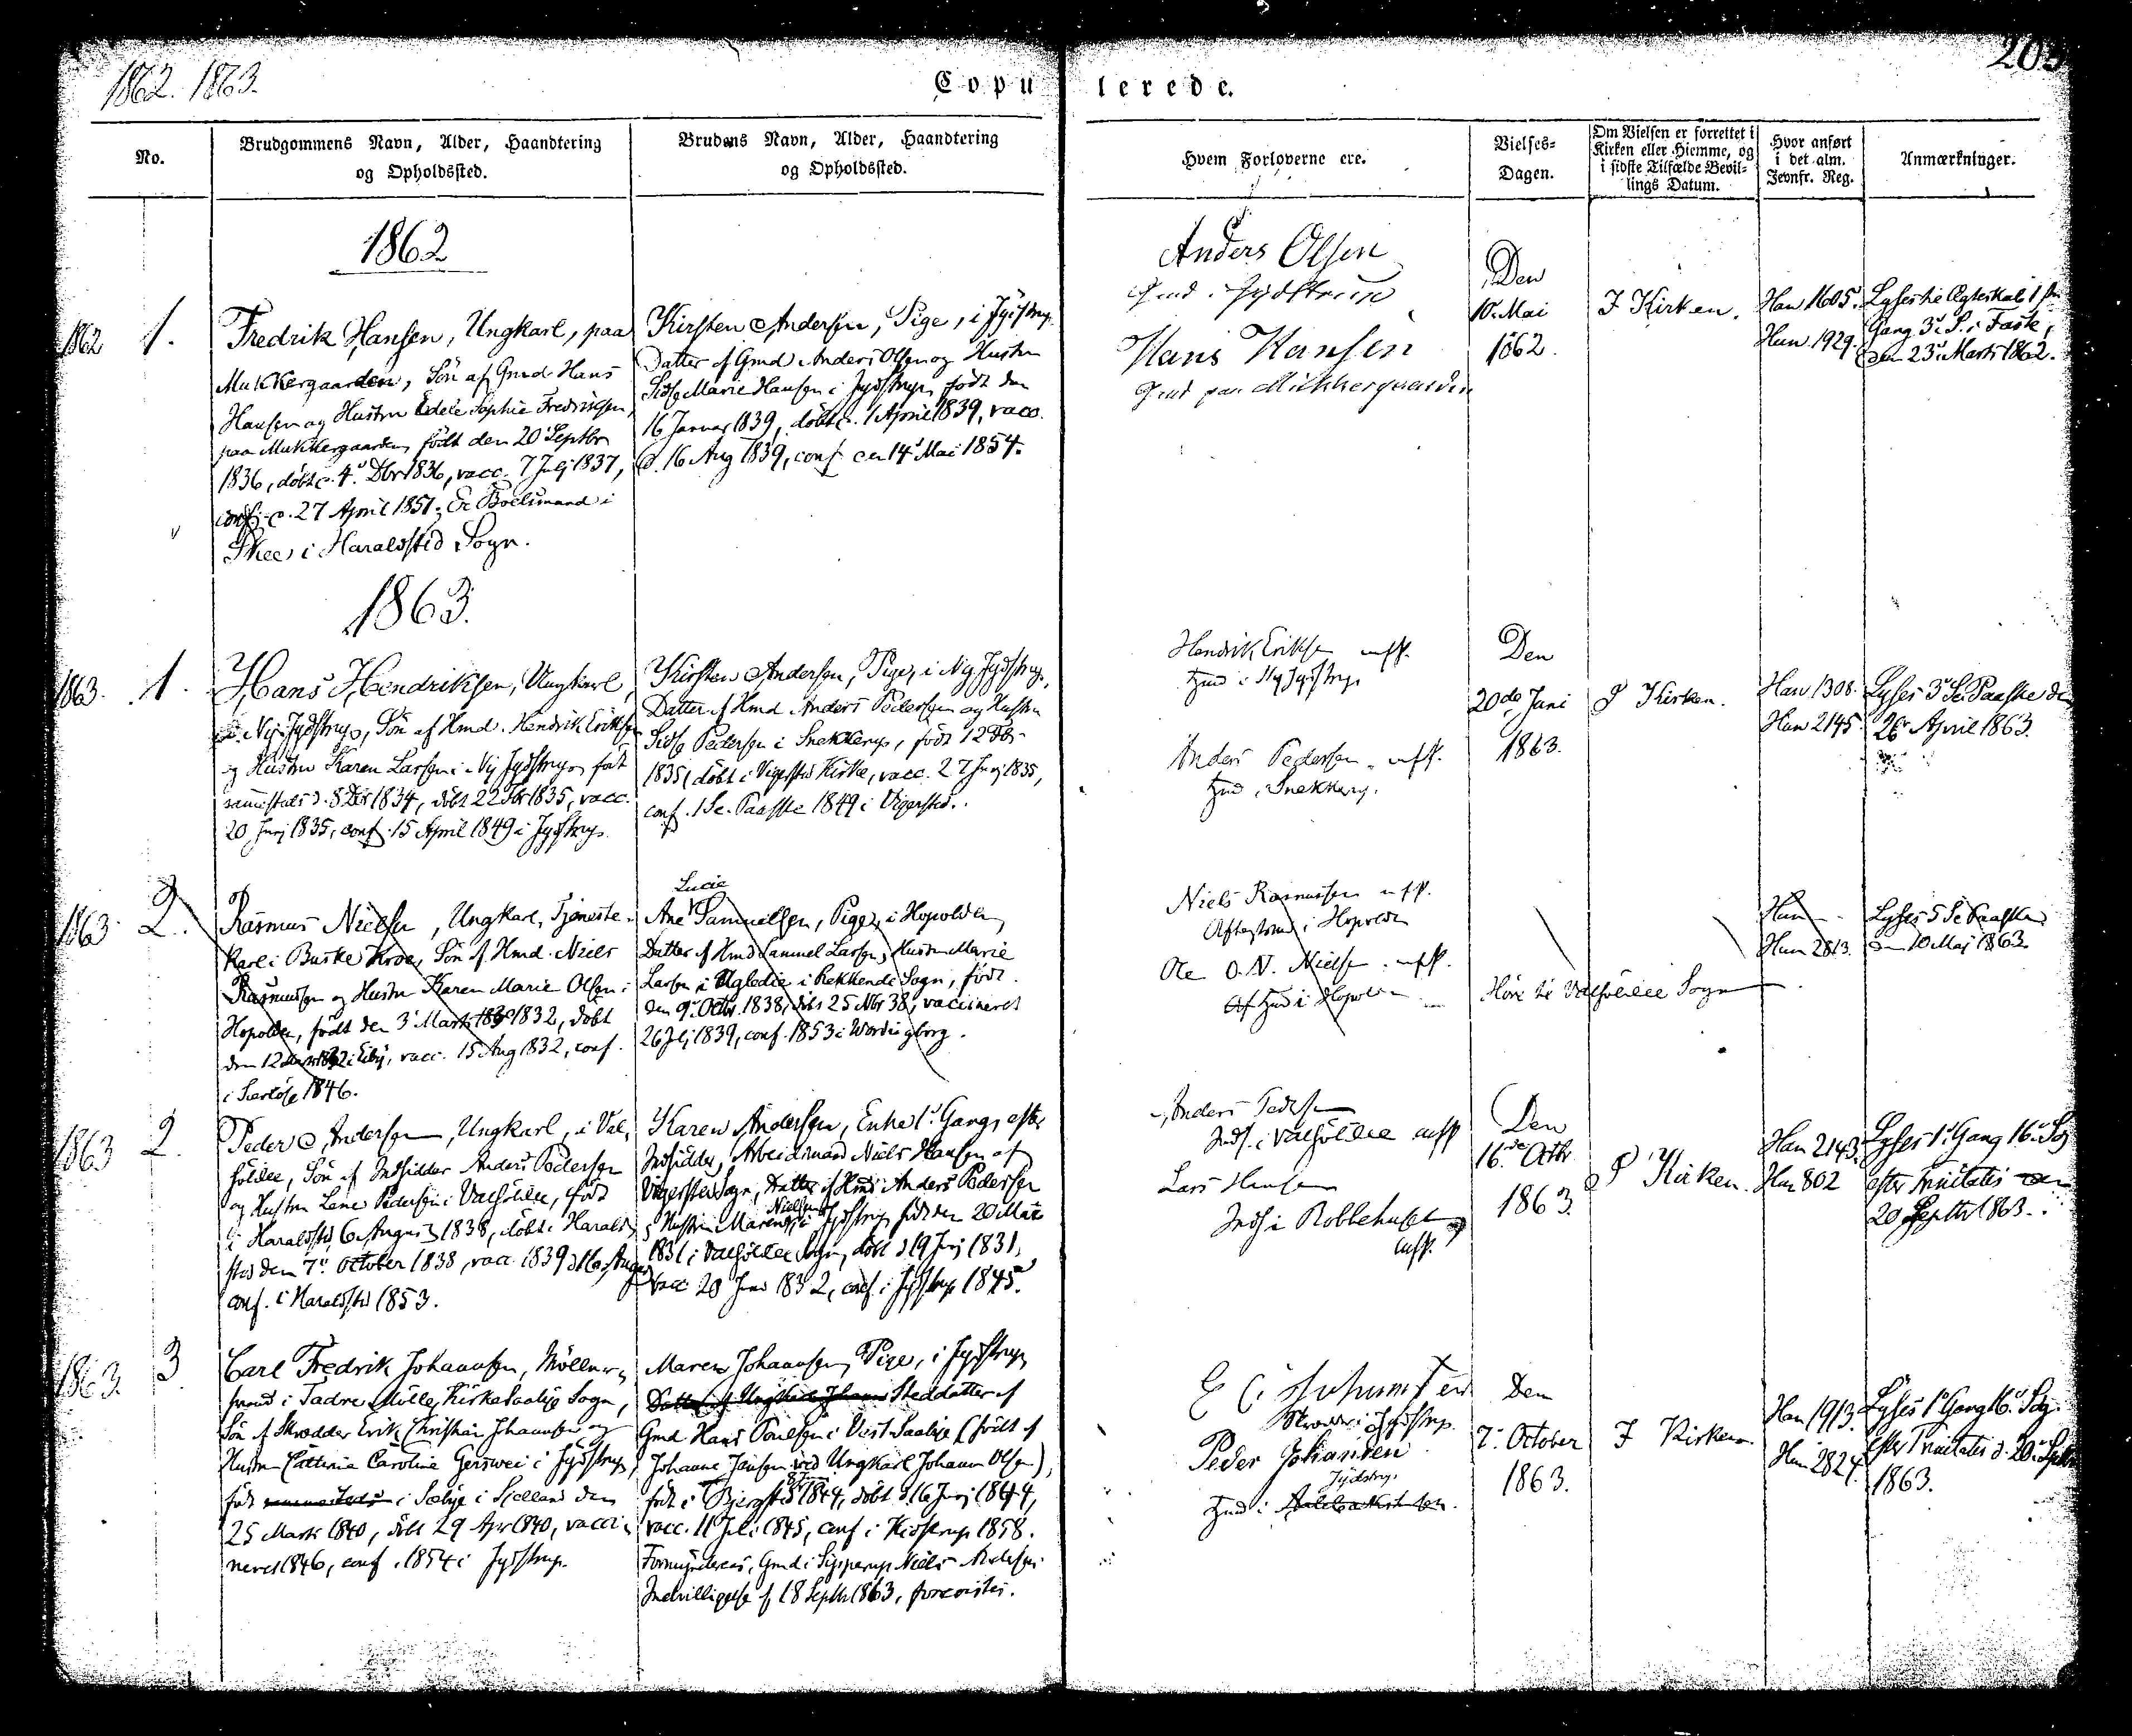 1862. 1863.
Copulerede.
205
No.
Brudgommens Navn, Alder, Haandtering
og Opholdssted.
Brudens Navn, Alder, Haandtering
og Opholdssted.
Hvem Forloverne ere.
Vielses-
Dagen.
Om Vielsen er forrettet i
Kirken eller Hiemme, og
i sidste Tilfælde Bevil-
lings Datum.
Hvor anført
i det alm.
Jevnfr. Reg.
Anmærkninger.
1862
1862 1.
Fredrik Hansen, Ungkarl, paa
Mukkergaarden, Søn af Gmd Hans
Hansen og Hustru Edele Sophie Fredriksen,
paa Mukkergaarden, født den 20 Septbr
1836, døbt d. 4. Dbr 1836, vacc. 7 Julj 1837,
conf. d. 27 April 1851. Er Boelsmand i
Skee i Haraldsted Sogn.
Kirsten Andersen, Pige, i Jydstrup
Datter af Gmd Anders Olsen og Hustru
Sidse Marie Hansen i Jydstrup, født den
16 Januar 1839, døbt d. 1 April 1839, vacc.
d. 16 Aug 1839, conf. den 14 Mai 1854.
Anders Olsen
Gmd i Jydstrup
Hans Hansen
Gmd paa Mukkergaarden
Den
10. Mai
1862.
I Kirken.
Han 1605.
Hun 1929.
Lyses til Ægteskab 1ste
Gang 3. S. i Faste,
den 23. Marts 1862.
1863.
1863. 1.
Hans Hendriksen, Ungkarl,
i Ny Jydstrup, Søn af Hmd. Hendrik Eriksen
og Hustru Karen Larsen i Ny Jydstrup, født
sammesteds d. 8 Dbr 1834, døbt 22 Fbr 1835, vacc.
20 Junj 1835, conf. 15 April 1849 i Jydstrup.
Kirsten Andersen, Pige, i Ny Jydstrup,
Datter af Hmd Anders Pedersen og Hustru
Sidse Pedersen i Snekkerup, født 12 Fbr
1835, døbt i Vigersted Kirke, vacc. 27 Junj 1835,
conf. 1 Se. Paaske 1849 i Vigersted.
Hendrik Eriksen
Hmd i Ny Jydstrup
Anders Pedersen
Hmd, Snekkerup.
Den
20de Juni
1863.
I Kirken.
Han 1308.
Hun 2145
Lyses 3. Se. Paaske den
26. April 1863.
1863. 2.
Rasmus Nielsen, Ungkarl, Tjeneste-
karl i Buske Kroe, Søn af Hmd. Niels
Rasmussen og Hustru Karen Marie Olsen i
Hopolden, født den 3 Marts 1832, døbt
vacc. 15 Aug 1832, conf.
1846.
Lucie
Ane Samuelsen, Pige, i Hopolden,
Datter af Hmd Samuel Larsen, Hustru Marie
Larsen, i Ugledie i Rekkende Sogn, født
den 9. Octbr. 1838, døbt 25 Nbr 38, vaccineret
26 Julj 1839, conf. 1853 i Wordingborg.
Niels Rasmussen
Aftægtsmd i Hopolden
Ole O. N. Nielsen
Hmd i Hopolden
Høre til Valsölille Sogn
Han
Hun 2813.
Lyses 5 Se Paaske
den 10 Maj 1863.
1863 2.
Peder Andersen, Ungkarl, i Val-
sölille, Søn af Indsidder Anders Pedersen
og Hustru Lene Pedersen i Valsölille, født
i Haraldsted, 6 August 1838, døbt i Harald-
sted den 7. October 1838, vacc. 1839 d 16 August
conf. i Haraldsted 1853.
Karen Andersen, Enke 1. Gang, efter
Indsidder, Arbeidsmand Niels Hansen af
Vigersted Sogn, Datter af Hmd Anders Pedersen
Nielsen
og Hustru Maren i Jydstrup, født den 20 Mai
1831 i Valsölille Sogn, døbt d 19 Junj 1831,
vacc 20 Juni 1832, conf. i Jydstrup 1845.
Anders Pedersen
Inds. i Valsölille
Lars Hansen
Inds i Robbehuset
Den
16. Octbr
1863.
I Kirken.
Han 2143.
Hun 802
Lyses 1. Gang 16. Sdg
efter Trinitatis den
20 Septbr 1863.
1863. 3.
Carl Fredrik Johannsen, Möller-
svend i Tadre Mölle, Kirkesaabye Sogn,
Søn af Skrædder Erik Christian Johannsen og
Hustru Cathrine Caroline Gerswei i Jydstrup,
født sammesteds i Sæbye i Sjelland den
25 Marts 1840, døbt 29 Apr 1840, vacci-
neret 1846, conf. 1854 i Jydstrup.
Maren Johannsen, Pige, i Jydstrup,
Datter af Ungkarl Johann Steddatter af
Gmd Hans Poulsen i Vest-Saabye (født af
Johanne Jansen ved Ungkarl Johann Olsen),
født i Bjergsted 1844, døbt d. 16 Junj 1844,
vacc. 11 Juli 1845, conf. i Kidstrup 1858.
Formynderens, Gmd i Sipperup Niels Andersen
Indvilligelse af 18 Septbr 1863, forevistes.
Skrædder i Jydstrup.
Peder Johansen
Jydstrup.
Hmd i
Den
7. October
1863.
I Kirken.
Han 1913.
Hun 2824.
Lyses 1. Gang 16. Sdg.
efter Trinitatis d. 20. Septbr
1863.